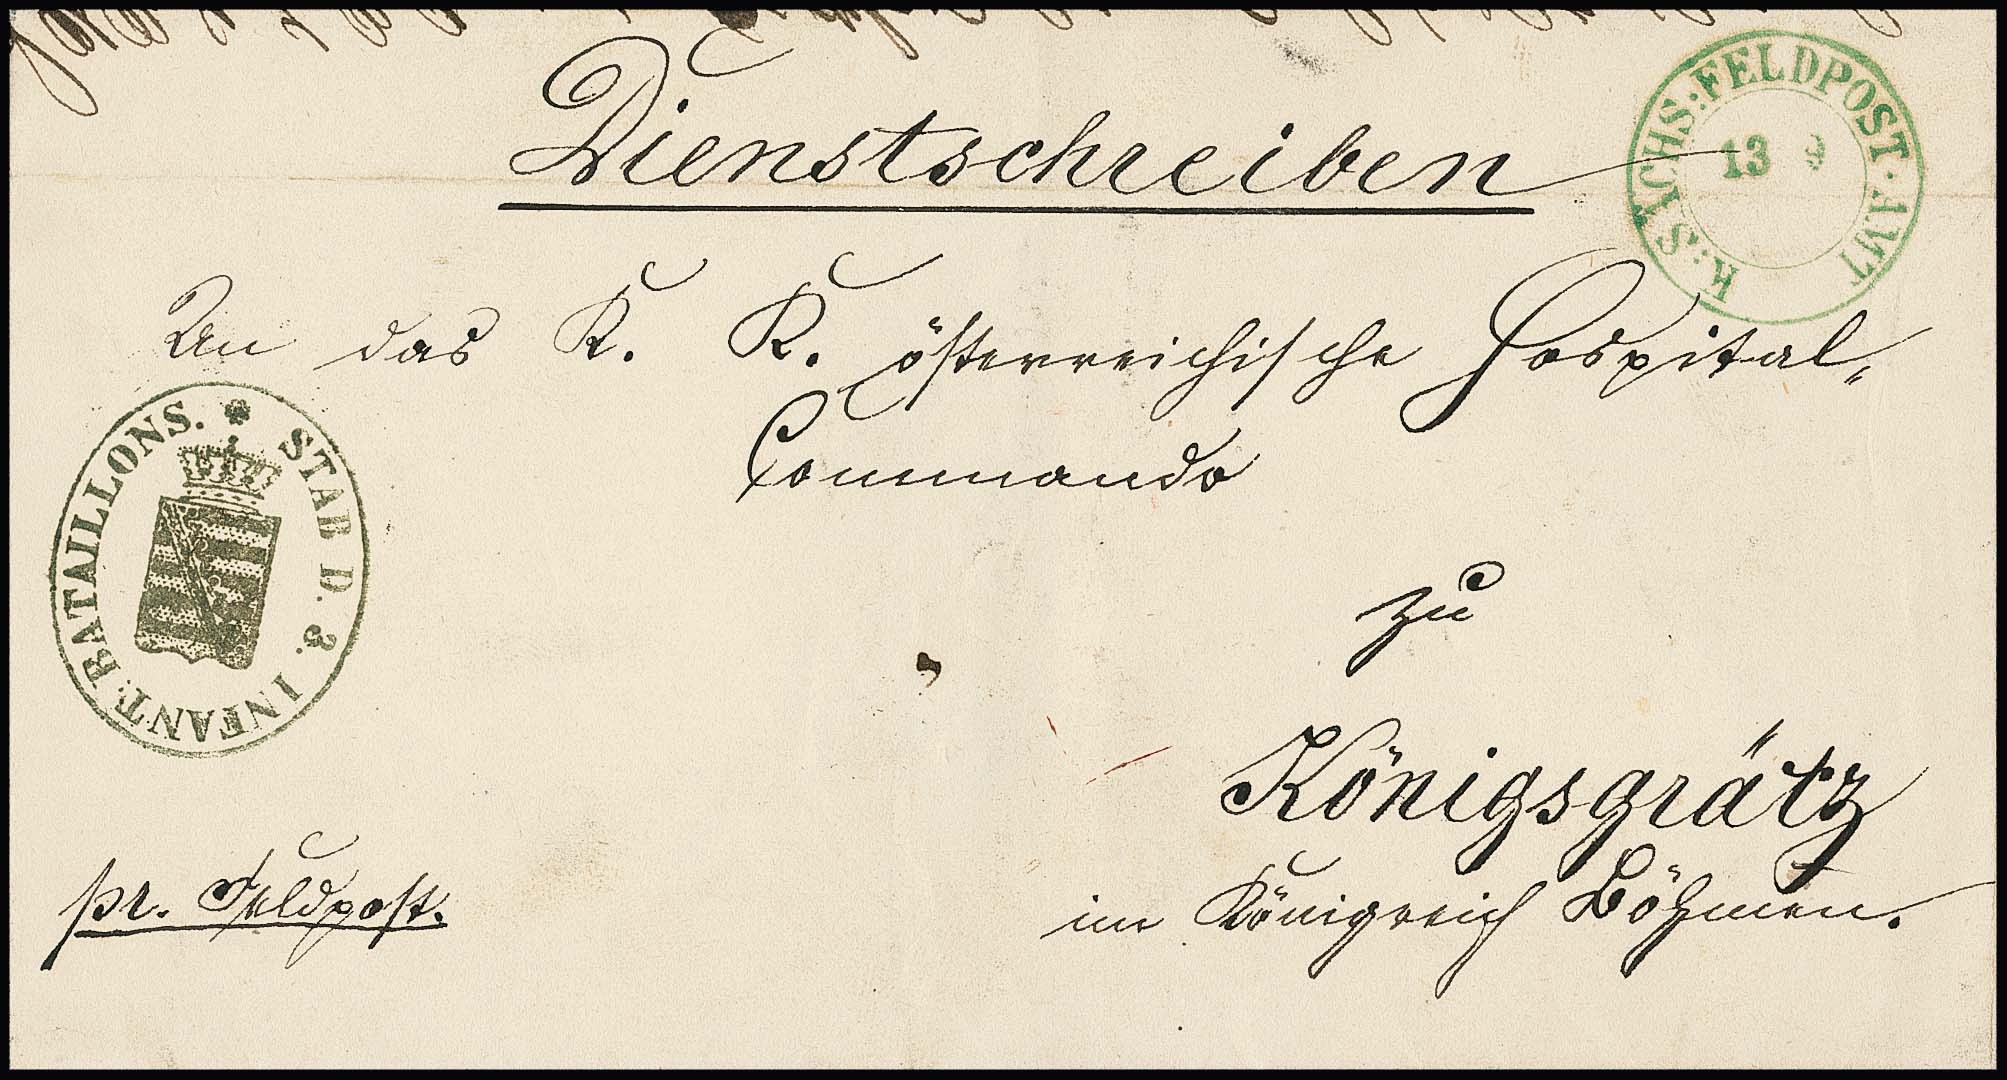 Dienstschreiben
K: SÄCHS: FELDPOST · AMT
13 9
An das K. K. österreichische Hospital-
Commando
STAB D. 3. INFANT: BATAILLONS.
zu
Königsgrätz
im Königreich Böhmen.
pr. Feldpost.